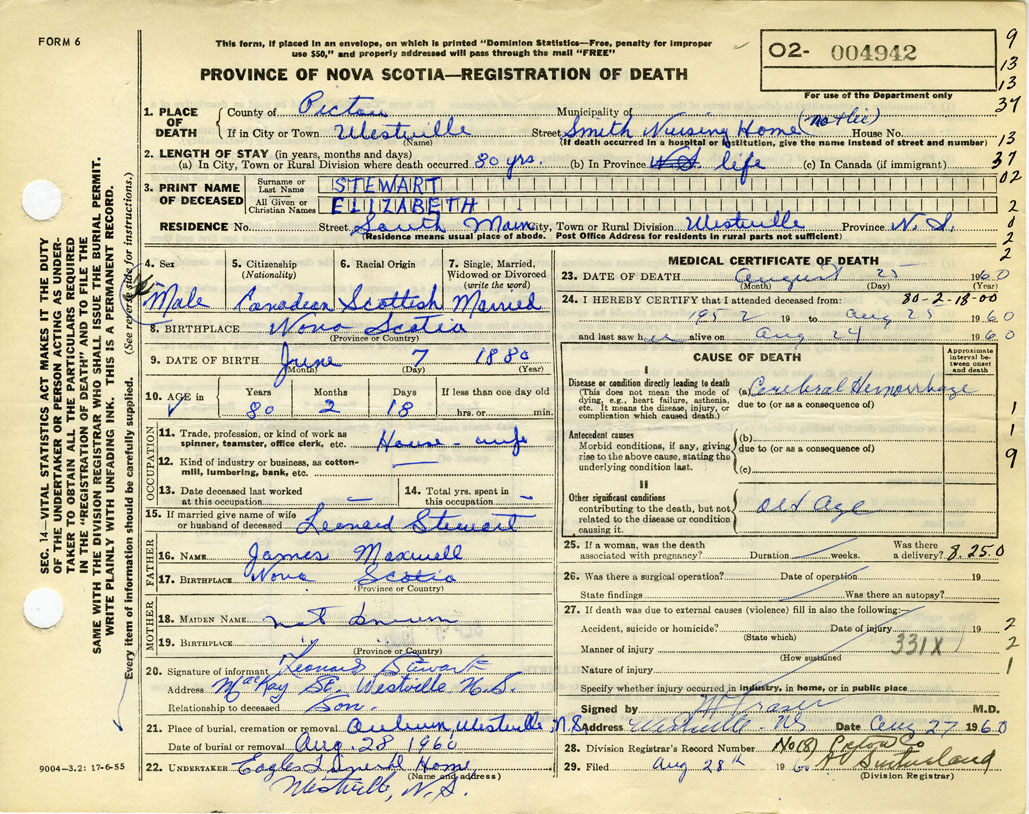 FORM 6
This form, if placed in an envelope, on which is printed "Dominion Statistics—Free, penalty for improper
use $50," and properly addressed will pass through the mail "FREE"
PROVINCE OF NOVA SCOTIA—REGISTRATION OF DEATH
O2- 004942
For use of the Department only
9
13
13
37
13
37
02
2
0
2
2
1. PLACE OF DEATH
County of Pictou Municipality of
If in City or Town Westville Street Smith Nursing Home House No.
(Name) (If death occurred in a hospital or institution, give the name instead of street and number)
2. LENGTH OF STAY (in years, months and days)
(a) In City, Town or Rural Division where death occurred 80 yrs. (b) In Province N.S. life (c) In Canada (if immigrant)
3. PRINT NAME OF DECEASED
Surname or Last Name STEWART
All Given or Christian Names ELIZABETH
RESIDENCE No. Street South Main City, Town or Rural Division Westville Province N.S.
(Residence means usual place of abode. Post Office Address for residents in rural parts not sufficient)
4. Sex 5. Citizenship 6. Racial Origin 7. Single, Married,
(Nationality) Widowed or Divorced
(write the word)
Male Canadian Scottish Married
8. BIRTHPLACE Nova Scotia
(Province or Country)
9. DATE OF BIRTH June 7 1880
(Month) (Day) (Year)
10. AGE in Years Months Days If less than one day old
80 2 18 hrs. or min.
OCCUPATION
11. Trade, profession, or kind of work as
spinner, teamster, office clerk, etc. House-wife
12. Kind of industry or business, as cotton-
mill, lumbering, bank, etc. —
13. Date deceased last worked 14. Total yrs. spent in
at this occupation — this occupation —
15. If married give name of wife
or husband of deceased Leonard Stewart
FATHER
16. NAME James Maxwell
17. BIRTHPLACE Nova Scotia
(Province or Country)
MOTHER
18. MAIDEN NAME not known
19. BIRTHPLACE "
(Province or Country)
20. Signature of informant Leonard Stewart
Address MacKay St. Westville N.S.
Relationship to deceased Son.
21. Place of burial, cremation or removal Auburn, Westville, N.S.
Date of burial or removal Aug. 28 1960
22. UNDERTAKER Eagles Funeral Home,
(Name and address)
Westville, N.S.
9004-3.2: 17-6-55
MEDICAL CERTIFICATE OF DEATH
23. DATE OF DEATH August 25 1960
(Month) (Day) (Year)
24. I HEREBY CERTIFY that I attended deceased from: 80-2-18-00
1952 19 to Aug 25 1960
and last saw her alive on Aug 24 1960
CAUSE OF DEATH
Approximate interval between onset and death
I
Disease or condition directly leading to death
(This does not mean the mode of
dying, e.g., heart failure, asthenia,
etc. It means the disease, injury, or
complication which caused death.)
(a) Cerebral Hemorrhage
due to (or as a consequence of)
1
Antecedent causes
Morbid conditions, if any, giving
rise to the above cause, stating the
underlying condition last.
(b)
due to (or as a consequence of)
(c)
1
9
II
Other significant conditions
contributing to the death, but not
related to the disease or condition
causing it.
Old Age
25. If a woman, was the death Was there
associated with pregnancy? Duration weeks. a delivery? 8.250
26. Was there a surgical operation? Date of operation 19
State findings Was there an autopsy?
27. If death was due to external causes (violence) fill in also the following:
Accident, suicide or homicide? Date of injury 19 2
(State which)
Manner of injury 331X 2
(How sustained
Nature of injury 1
Specify whether injury occurred in industry, in home, or in public place
Signed by H Fraser M.D.
Address Westville N.S. Date Aug 27 1960
28. Division Registrar's Record Number No (8) Pictou Co
29. Filed Aug 28th 1960 Sutherland
(Division Registrar)
SEC. 14—VITAL STATISTICS ACT MAKES IT THE DUTY
OF THE UNDERTAKER OR PERSON ACTING AS UNDER-
TAKER TO OBTAIN ALL THE PARTICULARS REQUIRED
IN THE "REGISTRATION OF DEATH" AND TO FILE THE
SAME WITH THE DIVISION REGISTRAR WHO SHALL ISSUE THE BURIAL PERMIT.
WRITE PLAINLY WITH UNFADING INK. THIS IS A PERMANENT RECORD.
Every item of information should be carefully supplied. (See reverse side for instructions.)